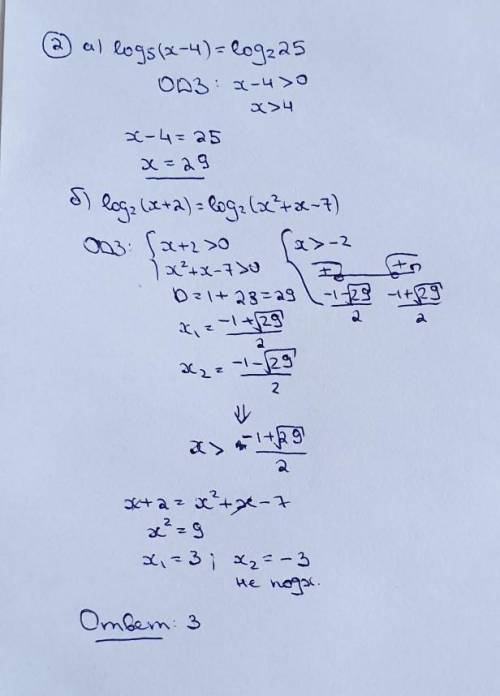 ② а) log₅(x-4) = log₂25
ОДЗ: x-4>0
x>4
x-4 = 25
x = 29
б) log₂(x+2) = log₂(x²+x-7)
ОДЗ: { x+2>0 { x>-2
x²+x-7>0 + +
D = 1 + 28 = 29 (-1-√29)/2 (-1+√29)/2
x₁ = (-1+√29)/2
x₂ = (-1-√29)/2
⇓
x > (-1+√29)/2
x+2 = x²+x-7
x² = 9
x₁ = 3; x₂ = -3
не подх.
Ответ: 3